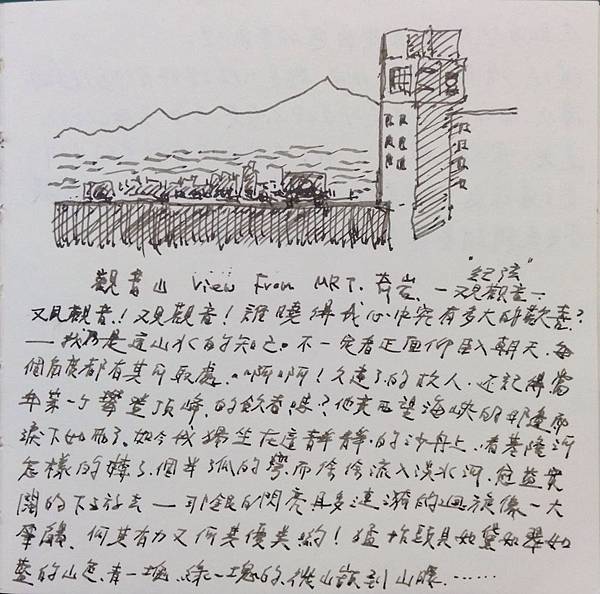 觀音山 View From MRT. 奇岩. "紀弦" —又見觀音—
又見觀音！又見觀音！誰曉得我心中究有多大的歡喜？
—我乃是這山水的知己。不一定看正面仰臥朝天，每
個角度都有其可取處。啊啊！久違了的故人，还記得當
年某一个攀登頂峰的飲者嗎？他东西望海峽的那边而
淚下如雨了。如今我獨坐在這静静的沙丹上，看基隆河
怎樣的轉了個半弧的彎，而徐徐流入淡水河，
闊的下去—那銀的閃亮且多漣漪的迴旋像一大
何其有力又何其優美喲！猛抬頭見如黛如翠如
藍的山色，青一塊、綠一塊的，從山巔到山腰……